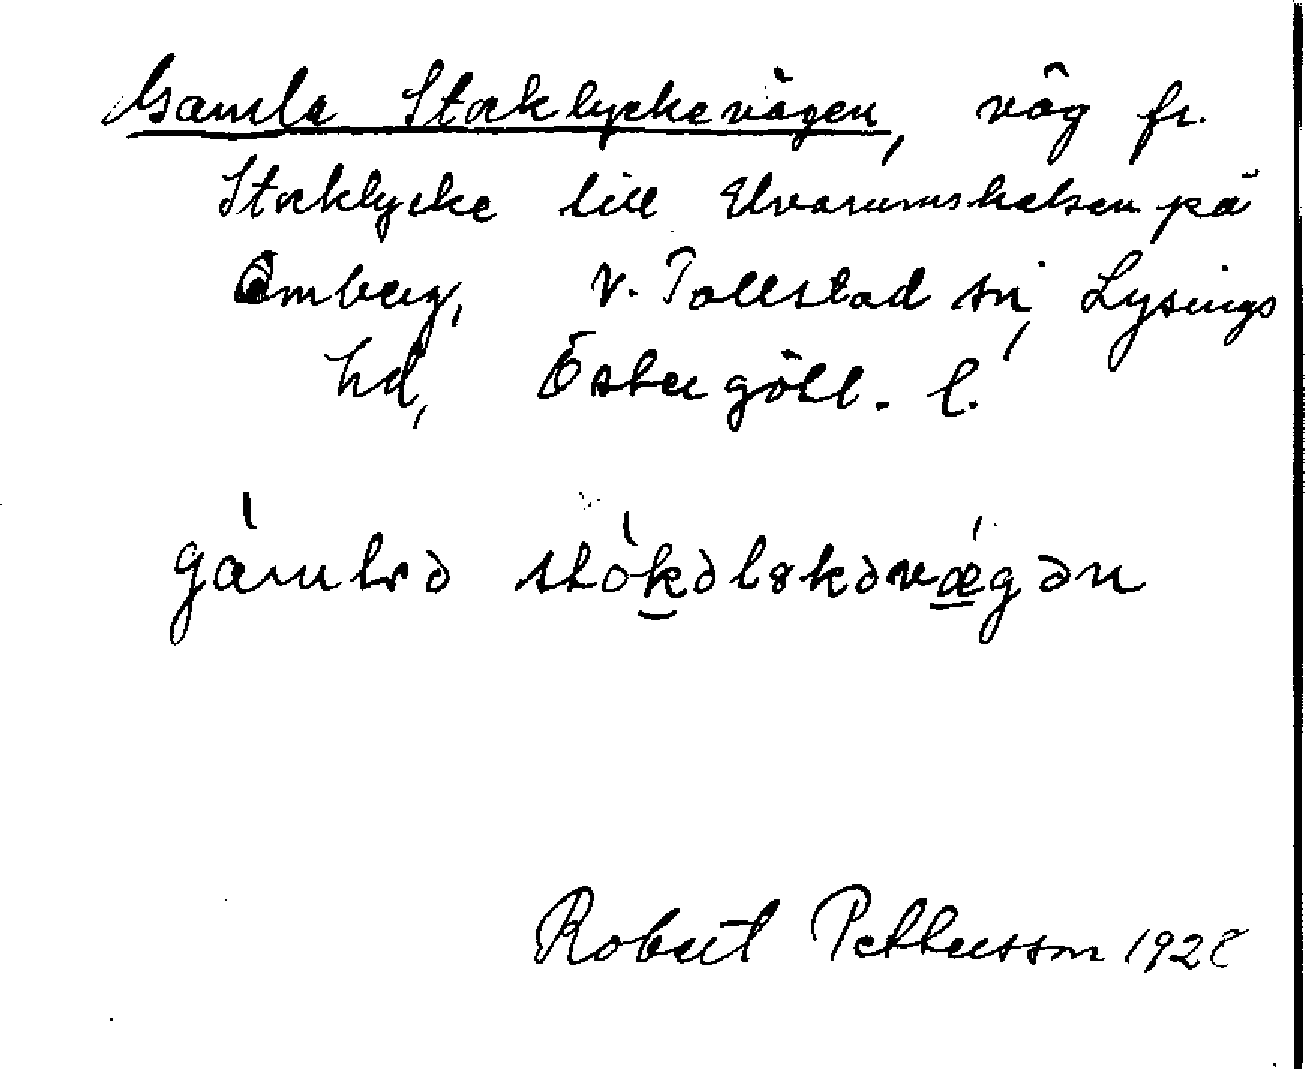 Gamla Stocklyckevägen, väg fr.
Stocklycke till Uvarumshalsen på
Omberg, V. Tollstad sn, Lysings
hd, Östergötl. l.
Robert Pettersson 1928